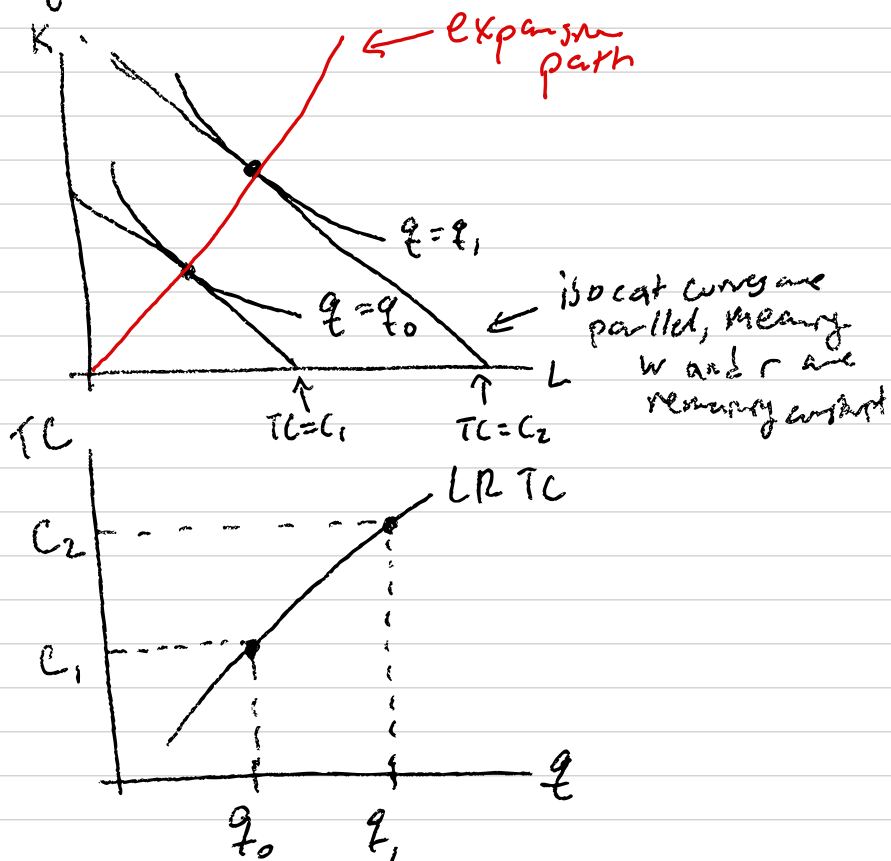 K
expansion
path
q = q₁
q = q₀
isocost curves are
parallel, meaning
w and r are
remaining constant
L
TC = C₁
TC = C₂
TC
LR TC
C₂
C₁
q
q₀
q₁